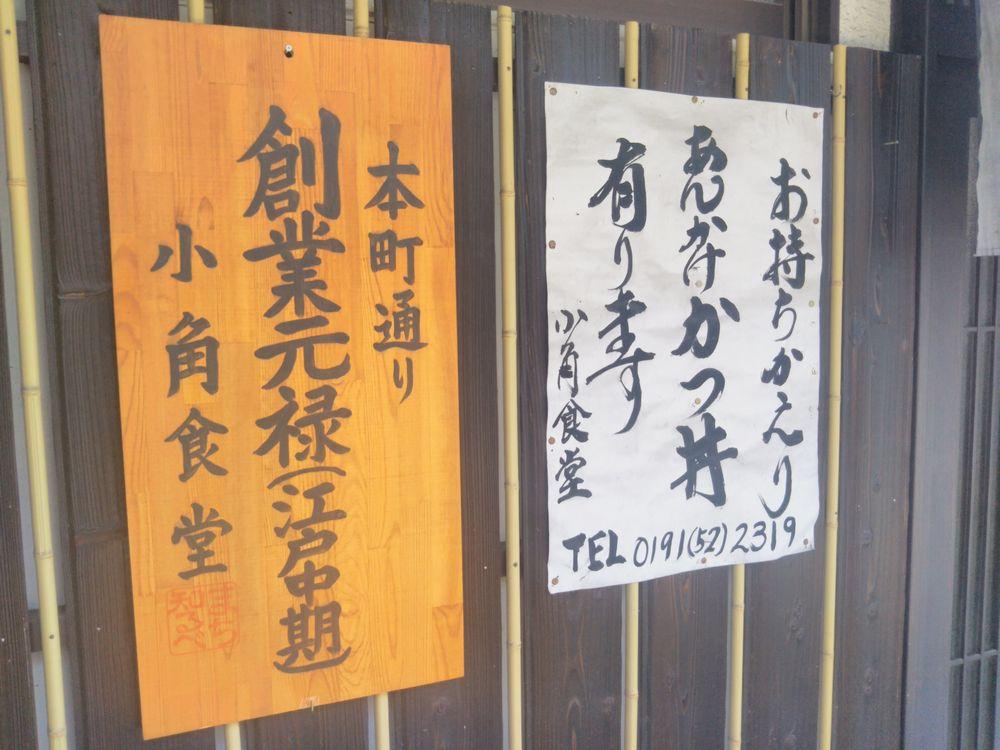 本町通り
創業元禄(江戸中期)
小角食堂
まち
知るべ
お持ちかえり
あんかけかつ丼
有ります
小角食堂
TEL 0191(52)2319